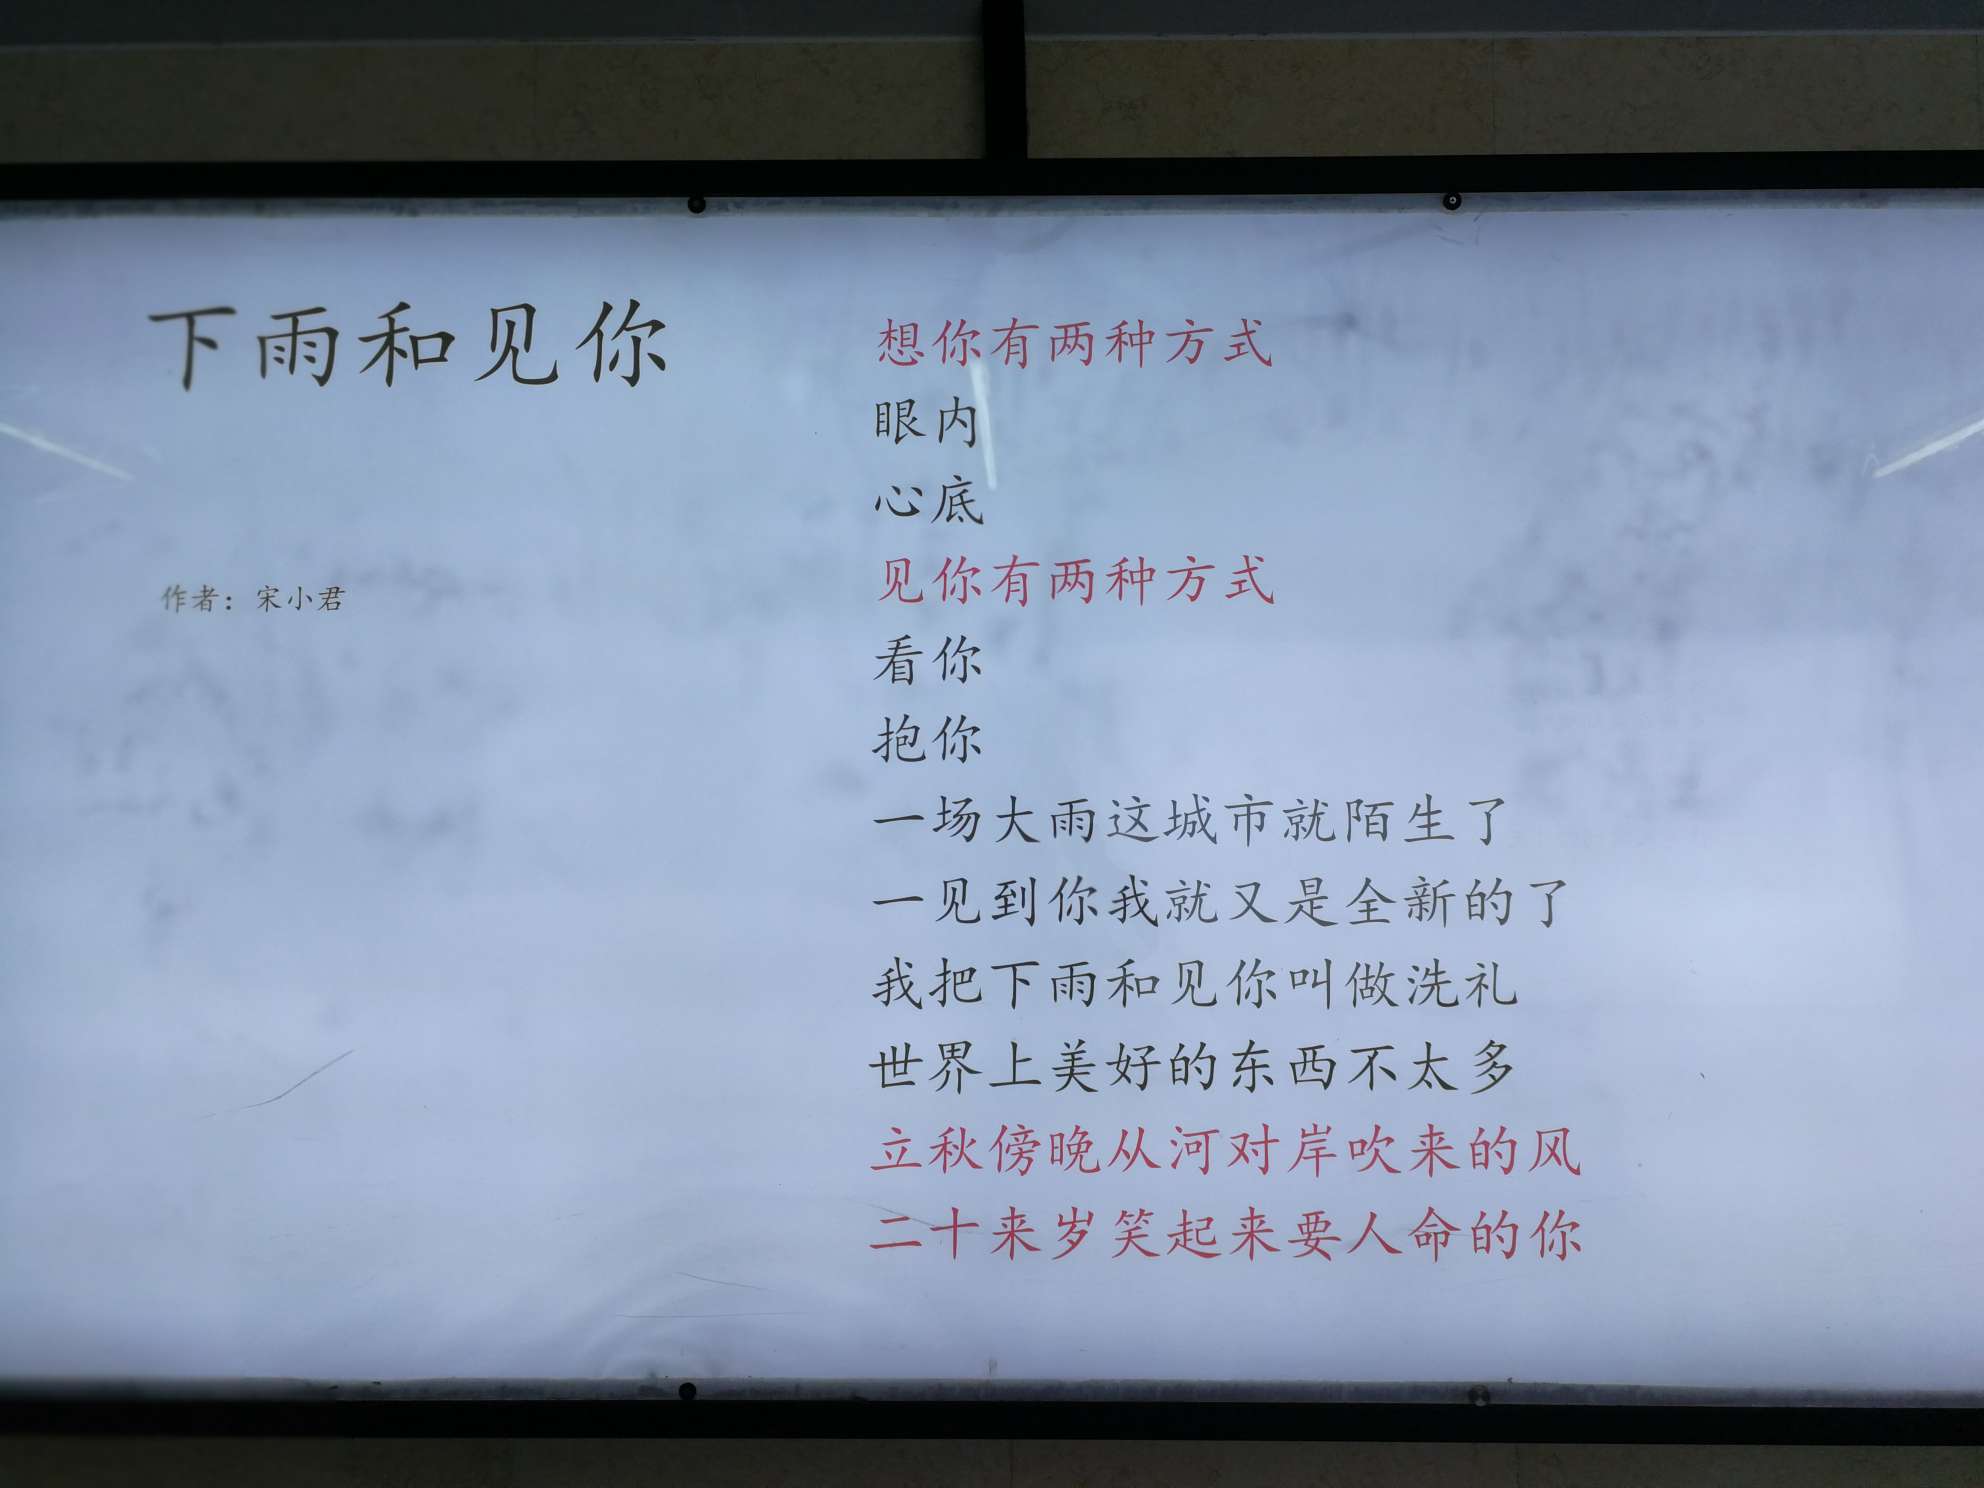 下雨和见你
作者：宋小君
想你有两种方式
眼内
心底
见你有两种方式
看你
抱你
一场大雨这城市就陌生了
一见到你我就又是全新的了
我把下雨和见你叫做洗礼
世界上美好的东西不太多
立秋傍晚从河对岸吹来的风
二十来岁笑起来要人命的你